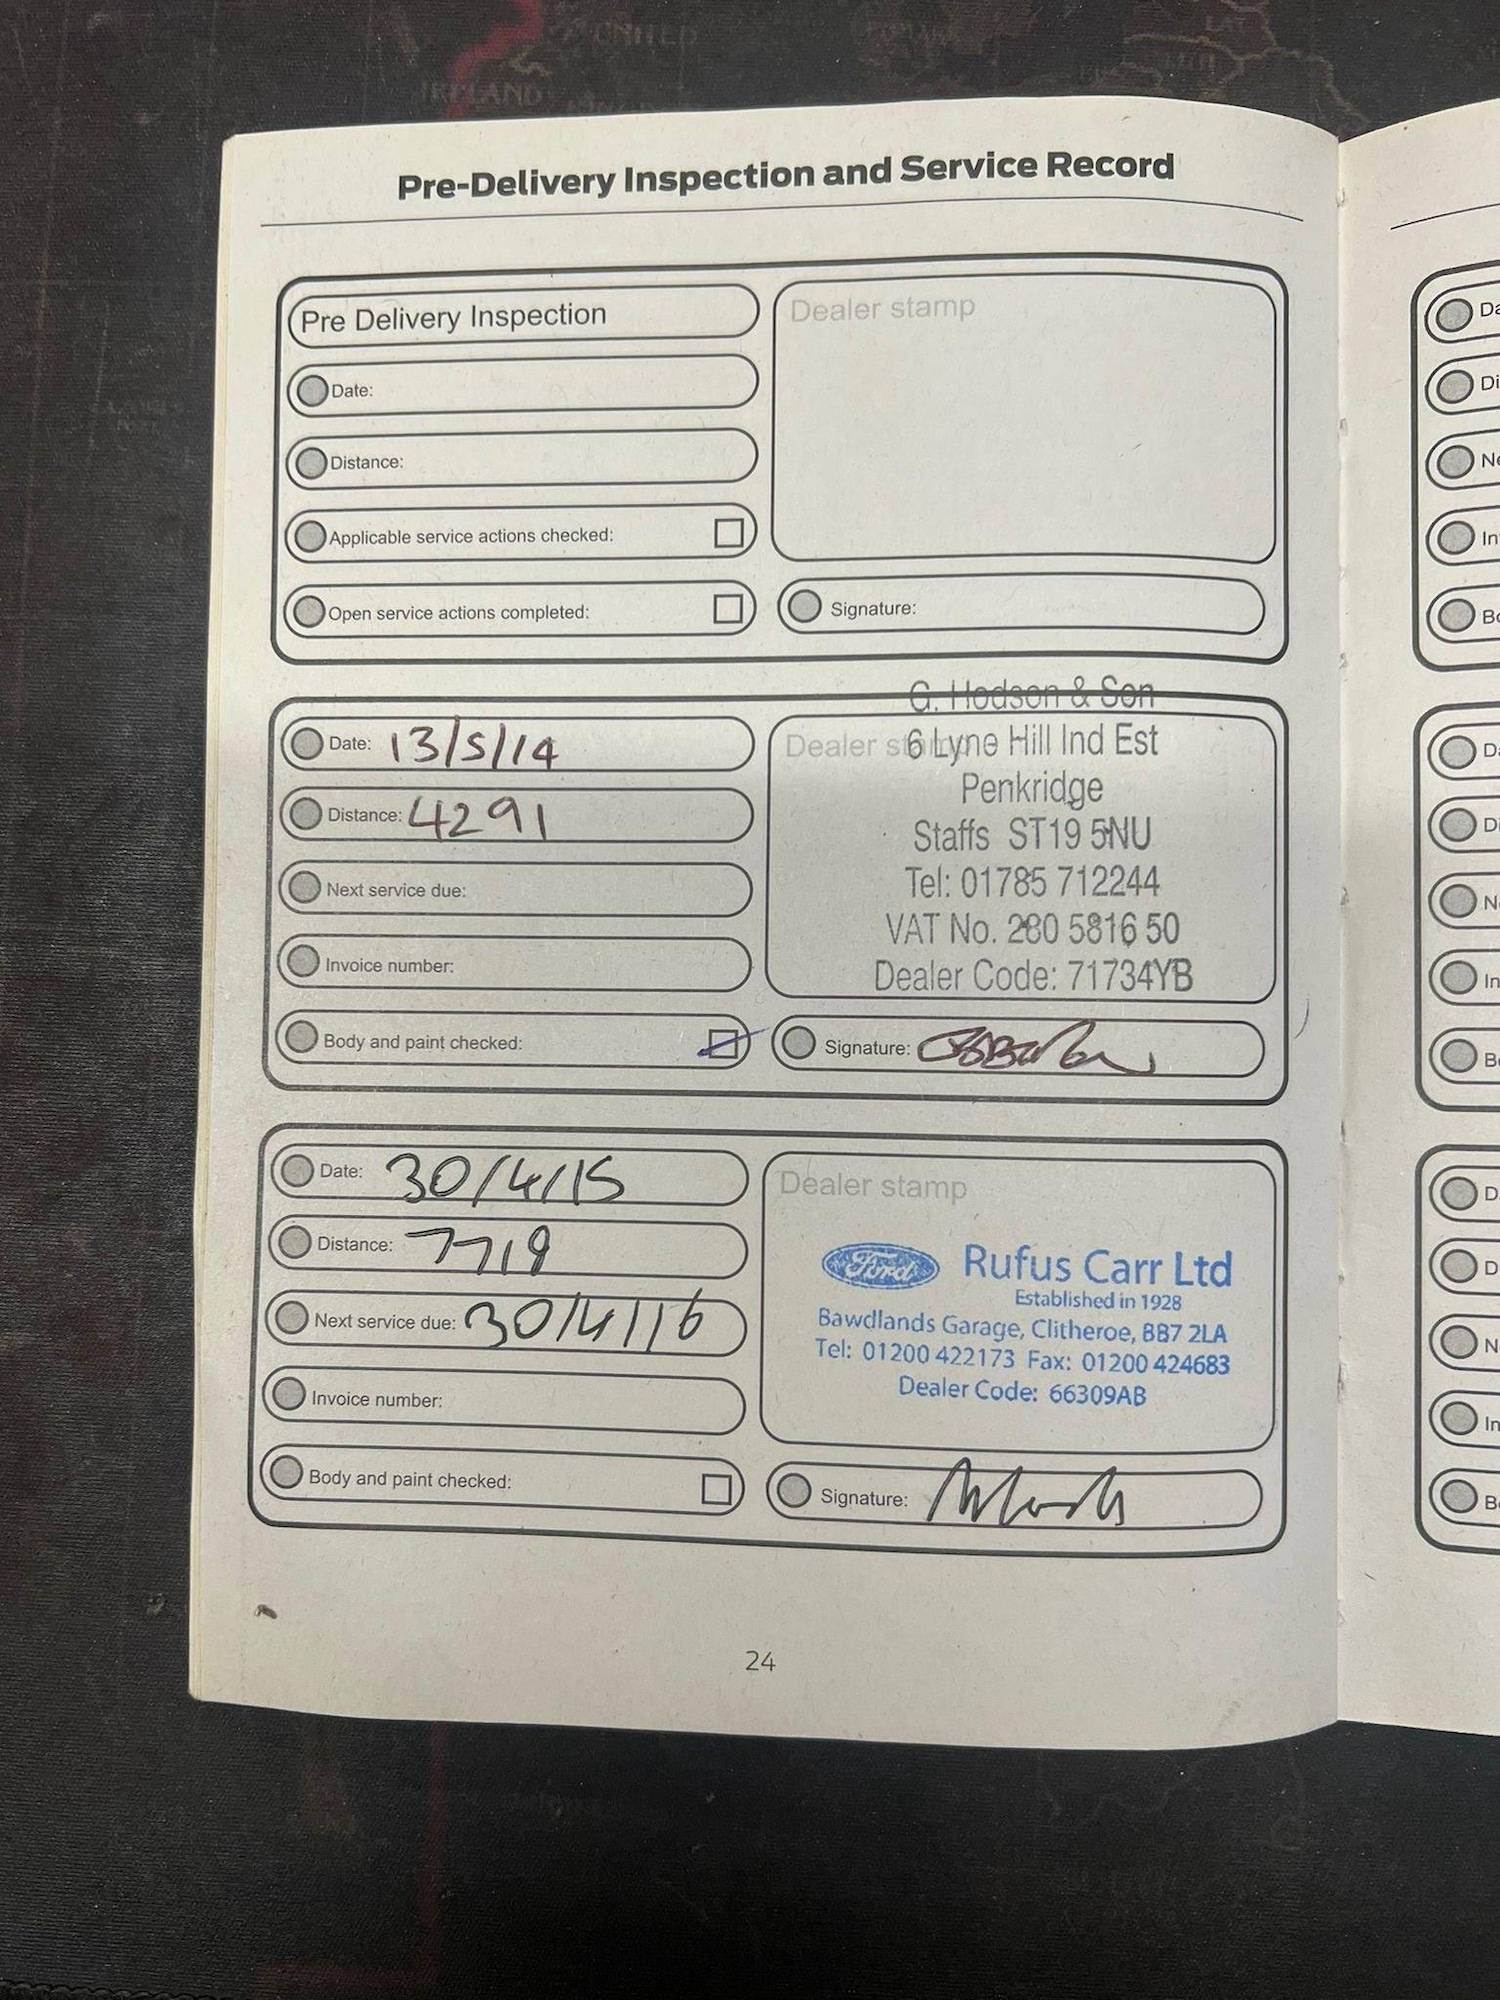 UNITED
IRELAND
Pre-Delivery Inspection and Service Record
Pre Delivery Inspection
Dealer stamp
Date:
Distance:
Applicable service actions checked:
Open service actions completed:
Signature:
G. Hodson & Son
Date: 13/5/14
Dealer stamp
6 Lyne Hill Ind Est
Penkridge
Distance: 4291
Staffs ST19 5NU
Next service due:
Tel: 01785 712244
VAT No. 280 5816 50
Invoice number:
Dealer Code: 71734YB
Body and paint checked:
Signature:
Date: 30/4/15
Dealer stamp
Distance: 7719
Ford Rufus Carr Ltd
Established in 1928
Next service due: 30/4/16
Bawdlands Garage, Clitheroe, BB7 2LA
Tel: 01200 422173 Fax: 01200 424683
Invoice number:
Dealer Code: 66309AB
Body and paint checked:
Signature:
24